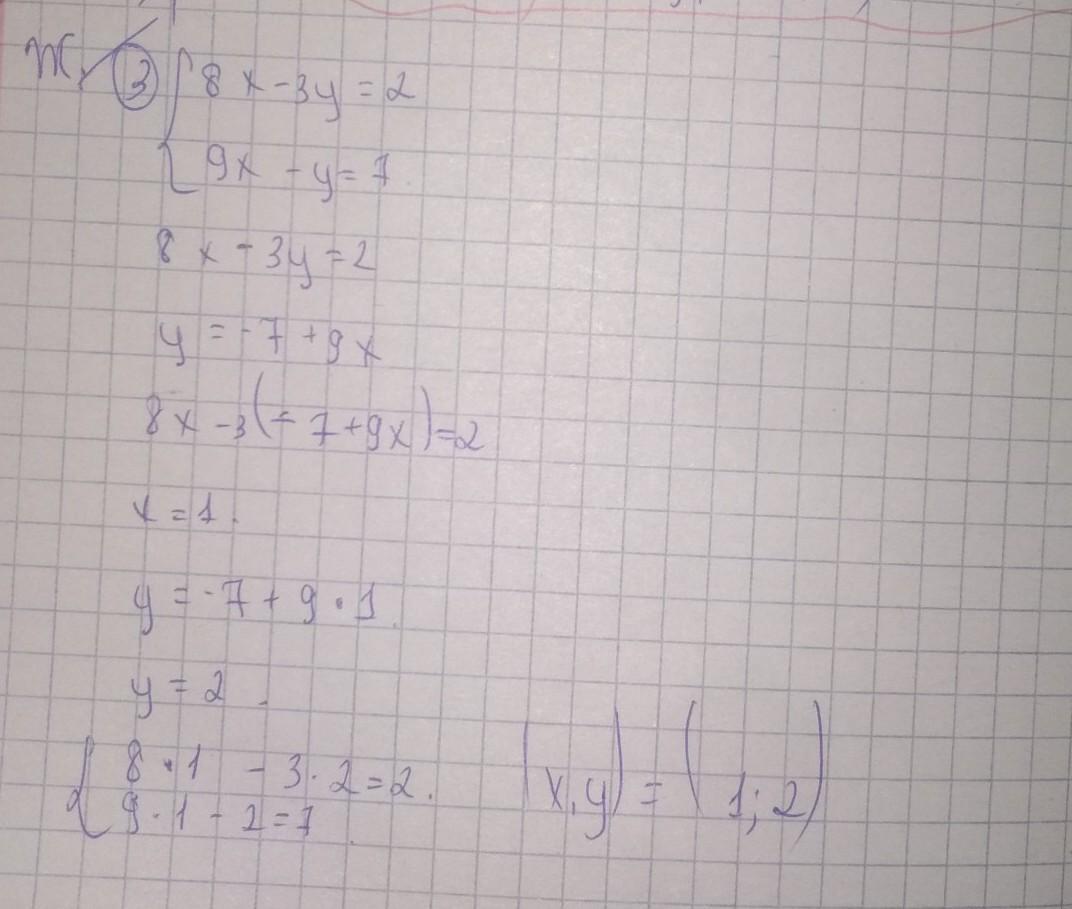 ③ { 8x - 3y = 2
9x - y = 7
8x - 3y = 2
y = -7 + 9x
8x - 3(-7 + 9x) = 2
x = 1.
y = -7 + 9 · 1
y = 2.
{ 8 · 1 - 3 · 2 = 2.
9 · 1 - 2 = 7
(x, y) = (1; 2)